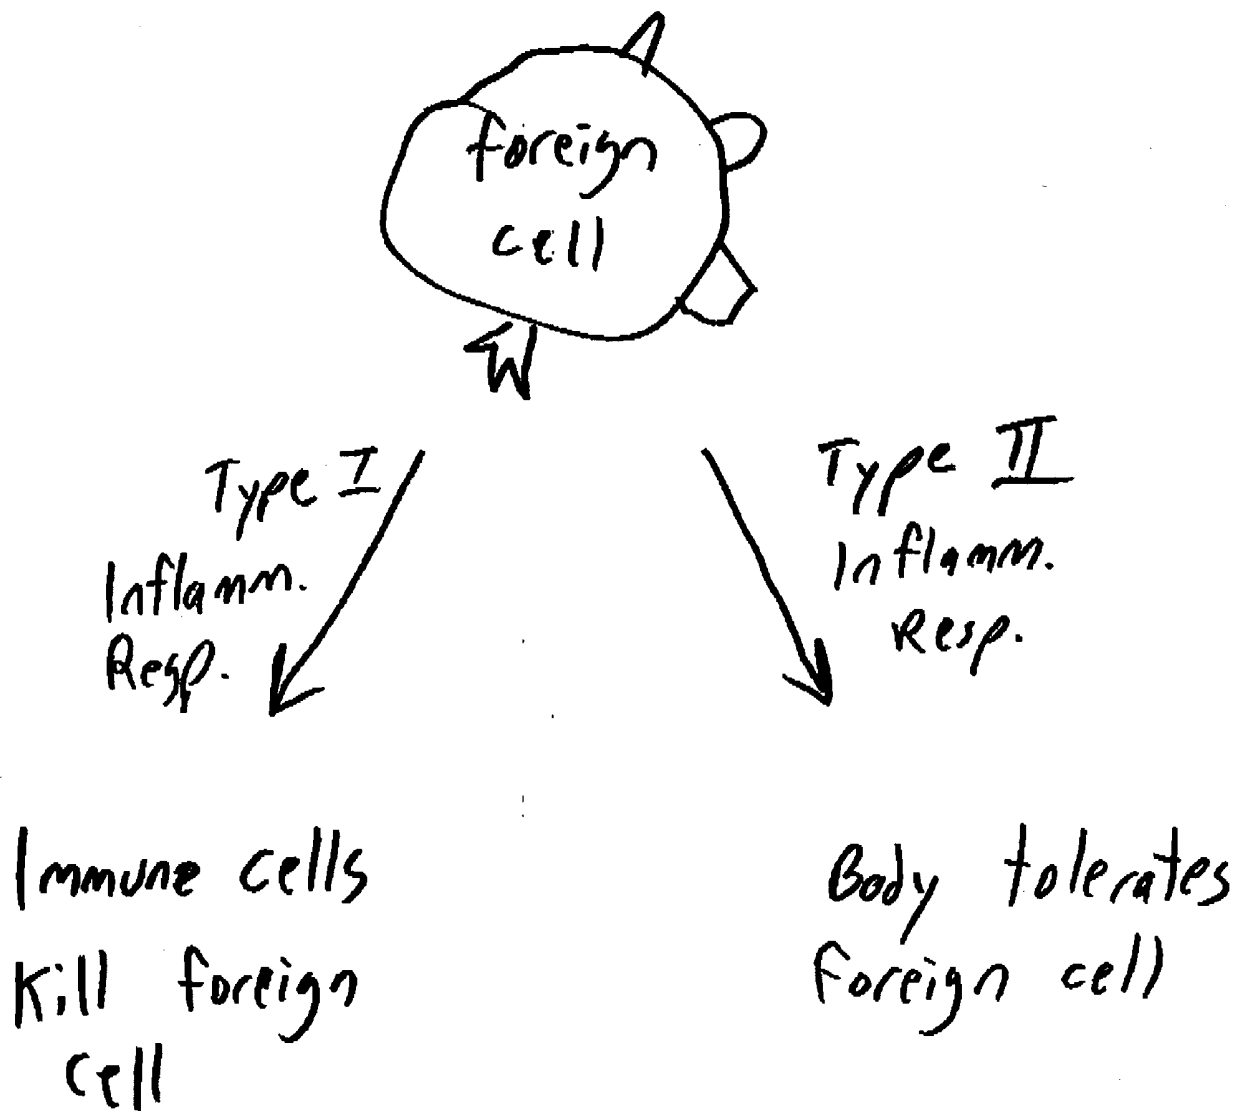 foreign
cell
Type I
Inflamm.
Resp.
Type II
Inflamm.
Resp.
Immune cells
Kill foreign
cell
Body tolerates
foreign cell